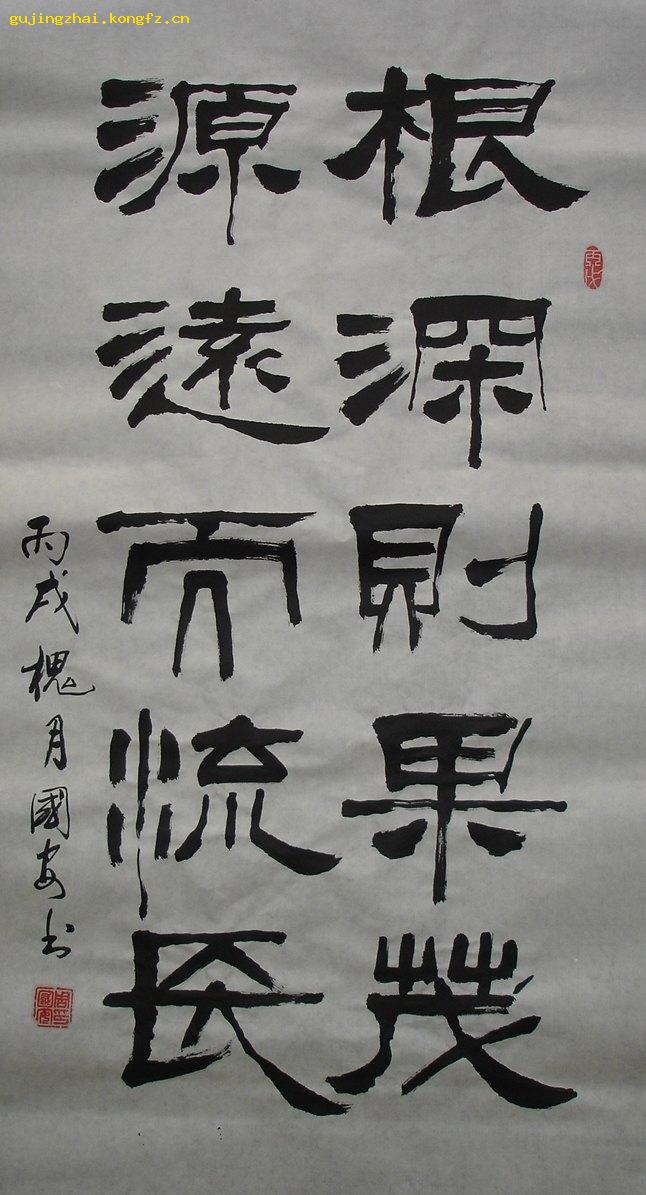 gujingzhai.kongfz.cn
根深則果茂
源遠而流長
丙戌槐月國安书
丙戌